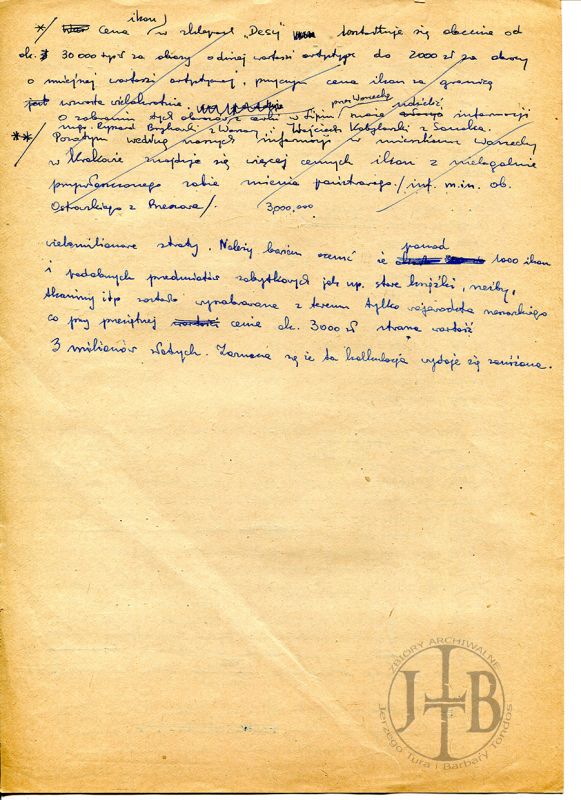 ikon
*/ Cena w sklepach "Desy" kształtuje się obecnie od
ok. 30 000 zł za obrazy o dużej wartości artystycz. do 2000 zł za obrazy
o mniejszej wartości artystycznej, przyczym cena ikon za granicą
jest wzrosła wielokrotnie
przez Wanechę udzielić
O zabraniu tych obrazów z cerkwi w Lipiu może informacji
mgr. Ryszard Brykowski z Warszawy i Wojciech Kobylarski z Sanoka.
**/ Ponadto według naszych informacji w mieszkaniu Wanechy
w Krakowie znajduje się więcej cennych ikon z nielegalnie
przywłaszczonego sobie mienia państwowego /inf. m.in. ob.
Ostrowskiego z Rzeszowa/. 3.000,000
wielomilionowe straty. Należy bowiem ocenić ponad
że 1000 ikon
i podobnych przedmiotów zabytkowych jak np. stare książki, rzeźby,
tkaniny itp zostało wyrabowane z terenu tylko województwa rzeszowskiego
co przy przeciętnej cenie ok. 3000 zł stanowi wartość
3 milionów złotych. Zaznacza się że ta kalkulacja wydaje się zaniżona.
ZBIORY ARCHIWALNE
JTB
Jerzego Tura i Barbary Tondos